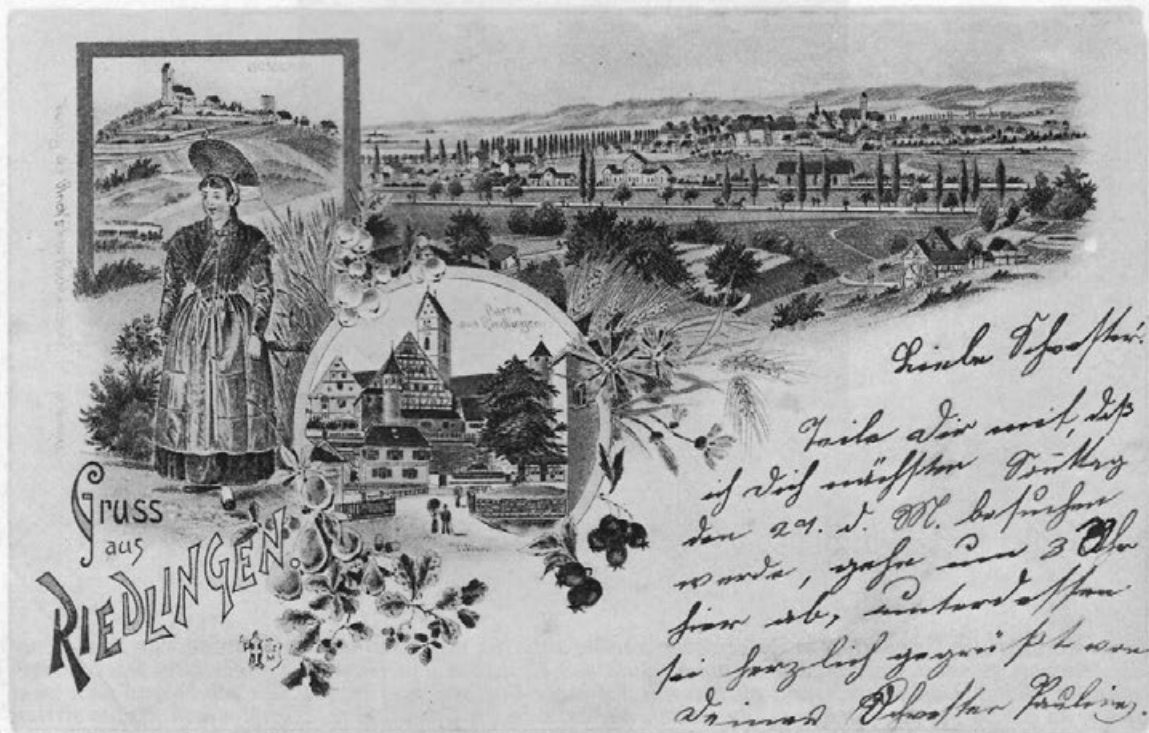 Gruss
aus
RIEDLINGEN.
Partie
aus Riedlingen
Liebe Schwester!
Teile Dir mit, daß
ich Dich nächsten Sonntag
den 29. d. M. besuchen
werde, gehe um 3 Uhr
hier ab, unterdessen
sei herzlich gegrüßt von
Deiner Schwester Pauline.